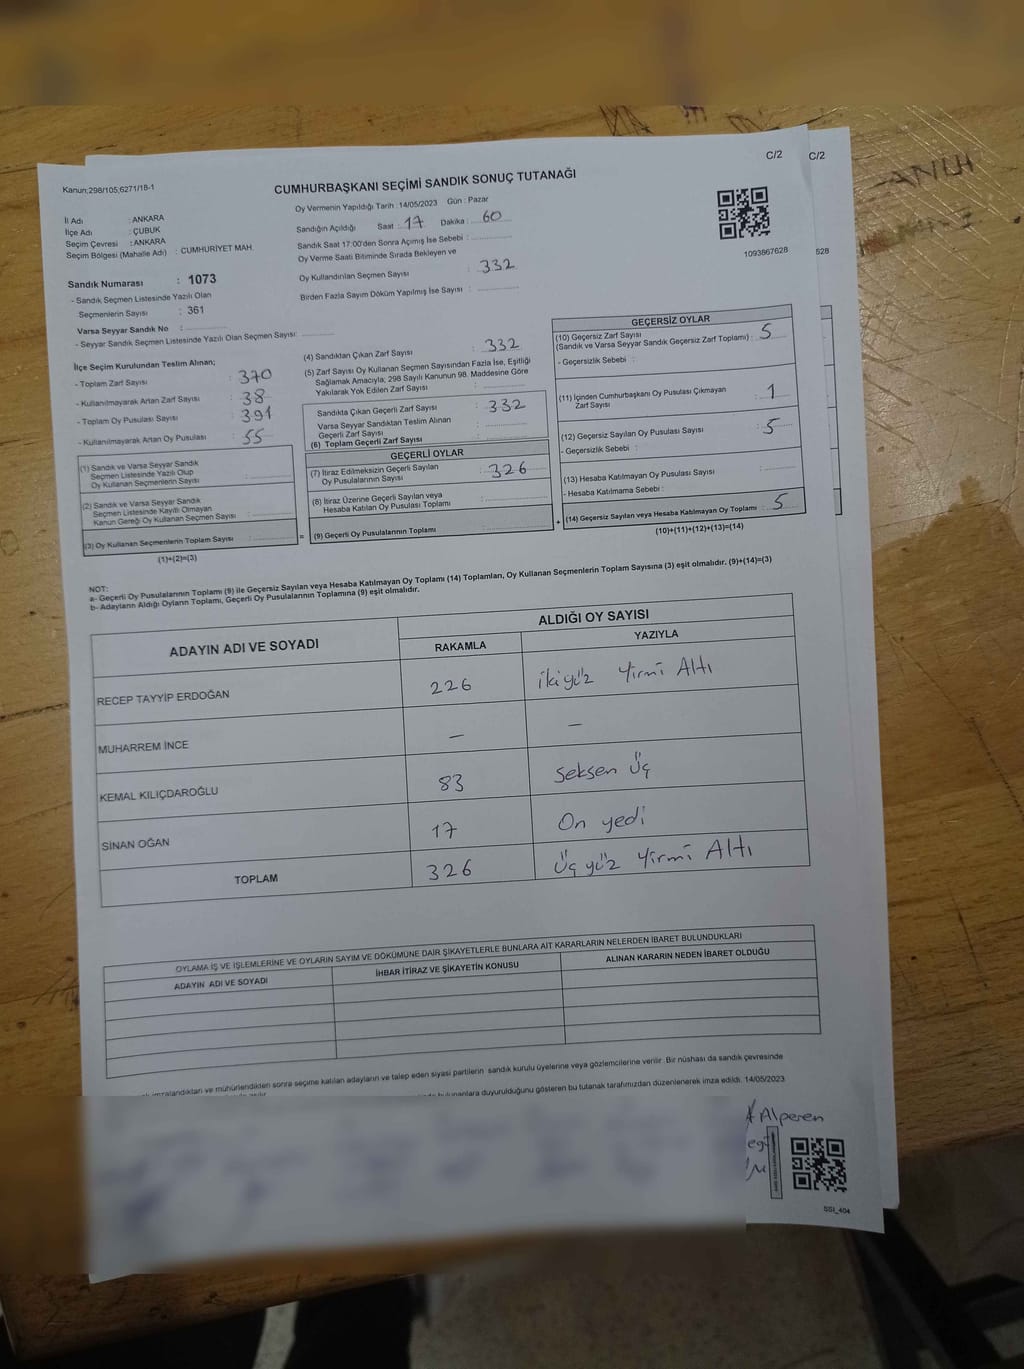 C/2
C/2
Kanun;298/105;6271/18-1
CUMHURBAŞKANI SEÇİMİ SANDIK SONUÇ TUTANAĞI
1093867628
628
İl Adı : ANKARA
İlçe Adı : ÇUBUK
Seçim Çevresi : ANKARA
Seçim Bölgesi (Mahalle Adı) : CUMHURİYET MAH.
Sandık Numarası : 1073
- Sandık Seçmen Listesinde Yazılı Olan
Seçmenlerin Sayısı : 361
Varsa Seyyar Sandık No :
- Seyyar Sandık Seçmen Listesinde Yazılı Olan Seçmen Sayısı:
Oy Vermenin Yapıldığı Tarih : 14/05/2023 Gün : Pazar
Sandığın Açıldığı Saat : 17 Dakika : 60
Sandık Saat 17:00'den Sonra Açımış İse Sebebi :
Oy Verme Saati Bitiminde Sırada Bekleyen ve
Oy Kullandırılan Seçmen Sayısı : 332
Birden Fazla Sayım Döküm Yapılmış İse Sayısı :
İlçe Seçim Kurulundan Teslim Alınan;
- Toplam Zarf Sayısı : 370
- Kullanılmayarak Artan Zarf Sayısı : 38
- Toplam Oy Pusulası Sayısı : 391
- Kullanılmayarak Artan Oy Pusulası : 55
(1) Sandık ve Varsa Seyyar Sandık
Seçmen Listesinde Yazılı Olup
Oy Kullanan Seçmenlerin Sayısı :
(2) Sandık ve Varsa Seyyar Sandık
Seçmen Listesinde Kayıtlı Olmayan
Kanun Gereği Oy Kullanan Seçmen Sayısı :
(3) Oy Kullanan Seçmenlerin Toplam Sayısı :
(1)+(2)=(3)
(4) Sandıktan Çıkan Zarf Sayısı : 332
(5) Zarf Sayısı Oy Kullanan Seçmen Sayısından Fazla İse, Eşitliği
Sağlamak Amacıyla; 298 Sayılı Kanunun 98. Maddesine Göre
Yakılarak Yok Edilen Zarf Sayısı :
Sandıkta Çıkan Geçerli Zarf Sayısı : 332
Varsa Seyyar Sandıktan Teslim Alınan
Geçerli Zarf Sayısı :
(6) Toplam Geçerli Zarf Sayısı :
GEÇERLİ OYLAR
(7) İtiraz Edilmeksizin Geçerli Sayılan
Oy Pusulalarının Sayısı : 326
(8) İtiraz Üzerine Geçerli Sayılan veya
Hesaba Katılan Oy Pusulası Toplamı :
= (9) Geçerli Oy Pusulalarının Toplamı : +
GEÇERSİZ OYLAR
(10) Geçersiz Zarf Sayısı
(Sandık ve Varsa Seyyar Sandık Geçersiz Zarf Toplamı) : 5
- Geçersizlik Sebebi :
(11) İçinden Cumhurbaşkanı Oy Pusulası Çıkmayan
Zarf Sayısı : 1
(12) Geçersiz Sayılan Oy Pusulası Sayısı : 5
- Geçersizlik Sebebi :
(13) Hesaba Katılmayan Oy Pusulası Sayısı :
- Hesaba Katılmama Sebebi :
(14) Geçersiz Sayılan veya Hesaba Katılmayan Oy Toplamı : 5
(10)+(11)+(12)+(13)=(14)
NOT:
a- Geçerli Oy Pusulalarının Toplamı (9) ile Geçersiz Sayılan veya Hesaba Katılmayan Oy Toplamı (14) Toplamları, Oy Kullanan Seçmenlerin Toplam Sayısına (3) eşit olmalıdır. (9)+(14)=(3)
b- Adayların Aldığı Oyların Toplamı, Geçerli Oy Pusulalarının Toplamına (9) eşit olmalıdır.
ADAYIN ADI VE SOYADI ALDIĞI OY SAYISI
RAKAMLA YAZIYLA
RECEP TAYYİP ERDOĞAN 226 ikiyüz Yirmi Altı
MUHARREM İNCE — —
KEMAL KILIÇDAROĞLU 83 Seksen Üç
SİNAN OĞAN 17 On yedi
TOPLAM 326 Üçyüz Yirmi Altı
OYLAMA İŞ VE İŞLEMLERİNE VE OYLARIN SAYIM VE DÖKÜMÜNE DAİR ŞİKAYETLERLE BUNLARA AİT KARARLARIN NELERDEN İBARET BULUNDUKLARI
ADAYIN ADI VE SOYADI İHBAR İTİRAZ VE ŞİKAYETİN KONUSU ALINAN KARARIN NEDEN İBARET OLDUĞU
imzalandıktan ve mühürlendikten sonra seçime katılan adayların ve talep eden siyasi partilerin sandık kurulu üyelerine veya gözlemcilerine verilir. Bir nüshası da sandık çevresinde
bulunanlara duyurulduğunu gösteren bu tutanak tarafımızdan düzenlenerek imza edildi. 14/05/2023
Alperen
SSI_404